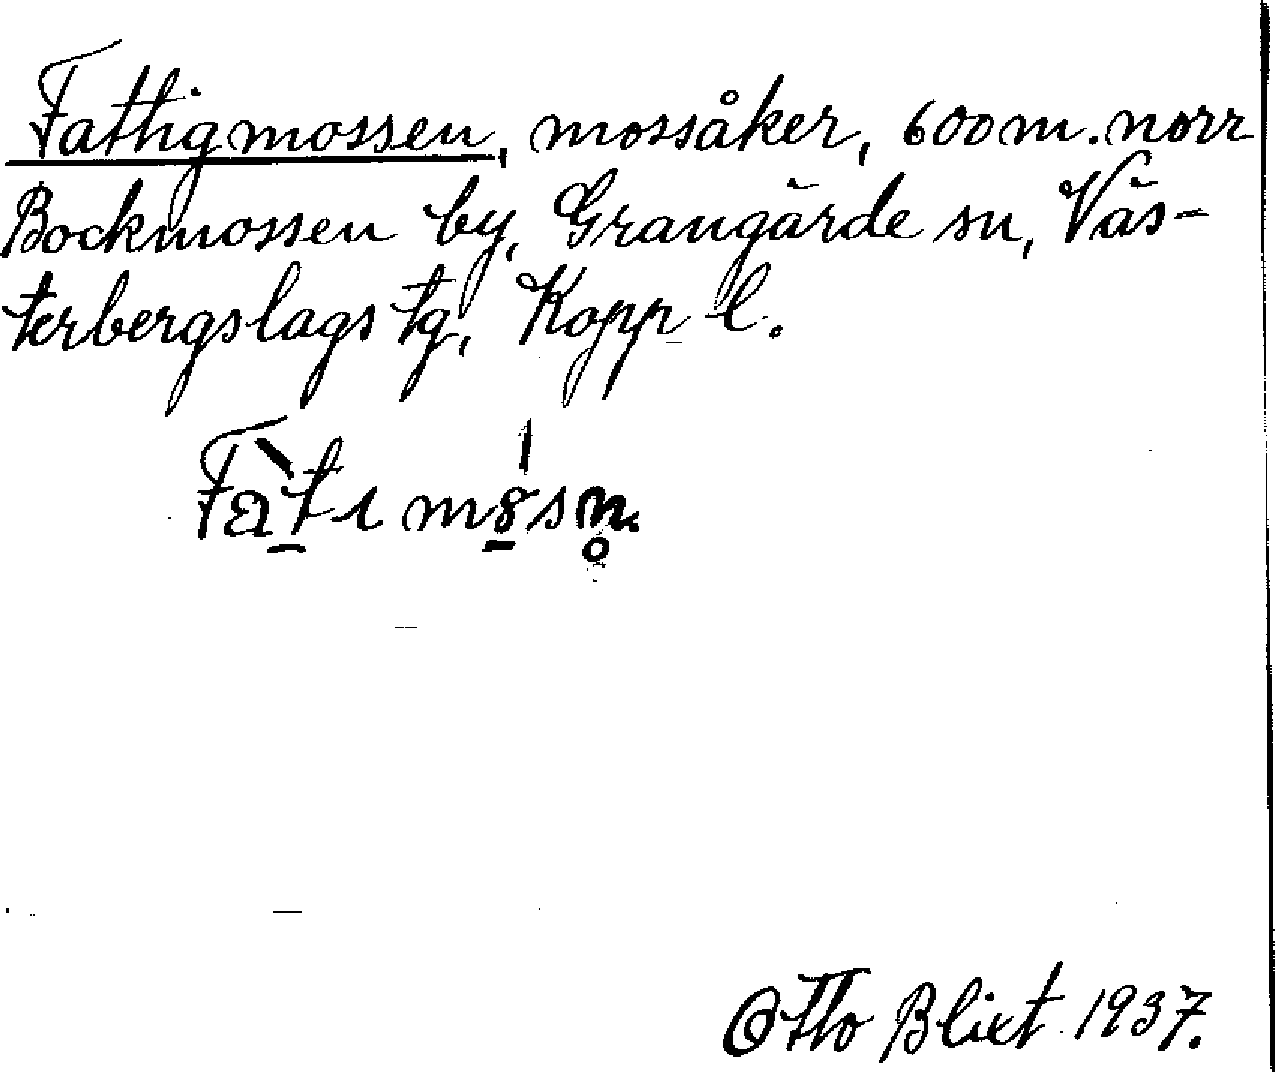 Fattigmossen, mossåker, 600 m. norr
Bockmossen by, Grangärde sn, Väs-
terbergslags tg, Kopp l.
Fàt̠ı mo̠sn̥.
Otto Blixt 1937.